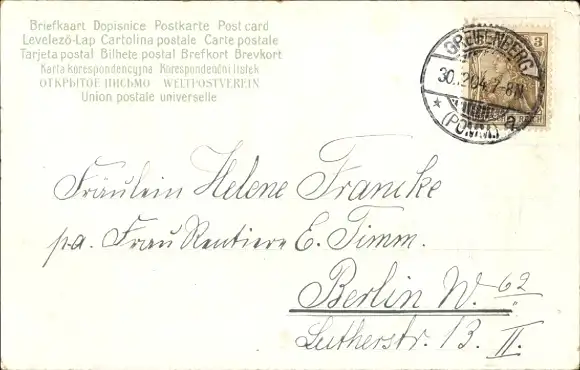 Briefkaart Dopisnice Postkarte Post card
Levelező-Lap Cartolina postale Carte postale
Tarjeta postal Bilhete postal Brefkort Brevkort
Karta korespondencyjna Korespondenční lístek
ОТКРЫТОЕ ПИСЬМО WELTPOSTVEREIN
Union postale universelle
GREIFENBERG
30.12.04. 7-8N.
* (POMM.) a
3
REICH
Fräulein Helene Francke
pa. Frau Rentiere E. Timm.
Berlin W. 62
Lutherstr. 13. II.